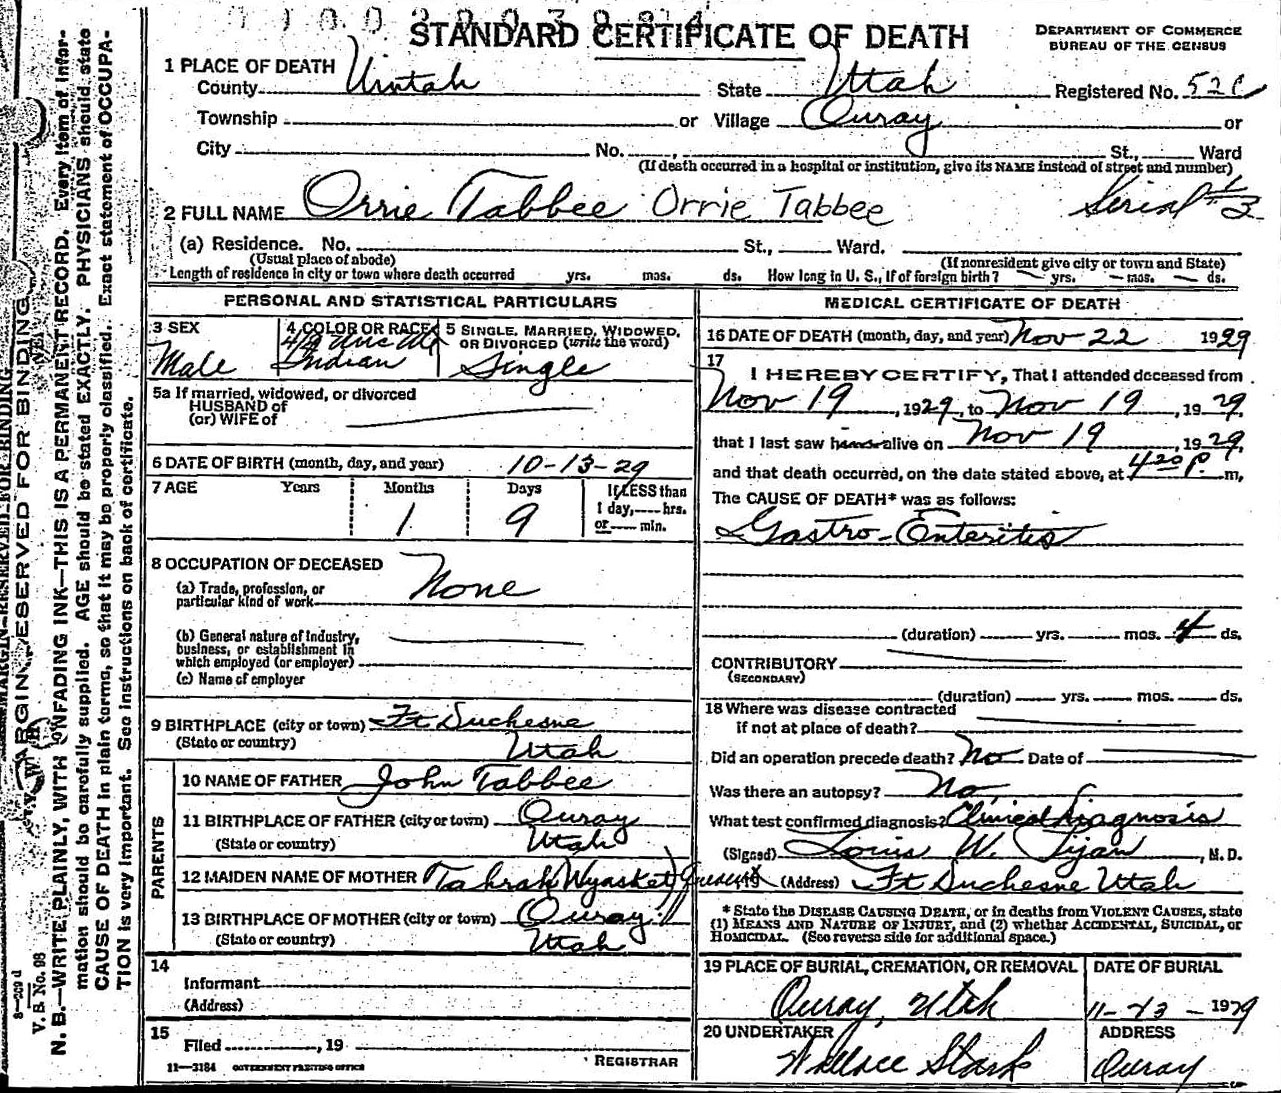 STANDARD CERTIFICATE OF DEATH
DEPARTMENT OF COMMERCE
BUREAU OF THE CENSUS
1 PLACE OF DEATH
County Uintah State Utah Registered No.
Township or Village Ouray or
City No. , St., Ward
(If death occurred in a hospital or institution, give its NAME instead of street and number)
2 FULL NAME Orrie Tabbee Orrie Tabbee Serial
(a) Residence. No. St., Ward.
(Usual place of abode) (If nonresident give city or town and State)
Length of residence in city or town where death occurred yrs. mos. ds. How long in U. S., if of foreign birth? yrs. mos. ds.
PERSONAL AND STATISTICAL PARTICULARS
3 SEX 4 COLOR OR RACE 5 SINGLE, MARRIED, WIDOWED, OR DIVORCED (write the word)
Male Indian Single
5a If married, widowed, or divorced
HUSBAND of
(or) WIFE of
6 DATE OF BIRTH (month, day, and year) 10-13-29
7 AGE Years Months Days If LESS than
1 9 1 day, hrs.
or min.
8 OCCUPATION OF DECEASED
None
(a) Trade, profession, or
particular kind of work
(b) General nature of industry,
business, or establishment in
which employed (or employer)
(c) Name of employer
9 BIRTHPLACE (city or town) Ft Duchesne
(State or country) Utah
PARENTS
10 NAME OF FATHER John Tabbee
11 BIRTHPLACE OF FATHER (city or town) Ouray
(State or country) Utah
12 MAIDEN NAME OF MOTHER Tahrah Wyasket
13 BIRTHPLACE OF MOTHER (city or town) Ouray
(State or country) Utah
14
Informant
(Address)
15
Filed , 19
REGISTRAR
11—3184 GOVERNMENT PRINTING OFFICE
MEDICAL CERTIFICATE OF DEATH
16 DATE OF DEATH (month, day, and year) Nov 22 1929
17
I HEREBY CERTIFY, That I attended deceased from
Nov 19 , 1929, to Nov 19 , 1929,
that I last saw him alive on Nov 19 , 1929,
and that death occurred, on the date stated above, at 4 20 P. m.
The CAUSE OF DEATH* was as follows:
Gastro-Enteritis
(duration) yrs. mos. 4 ds.
CONTRIBUTORY
(SECONDARY)
(duration) yrs. mos. ds.
18 Where was disease contracted
if not at place of death?
Did an operation precede death? No Date of
Was there an autopsy? No
What test confirmed diagnosis? Clinical Diagnosis
(Signed) Louis W. Tijan , M. D.
, 19 (Address) Ft Duchesne Utah
* State the DISEASE CAUSING DEATH, or in deaths from VIOLENT CAUSES, state
(1) MEANS AND NATURE OF INJURY, and (2) whether ACCIDENTAL, SUICIDAL, or
HOMICIDAL. (See reverse side for additional space.)
19 PLACE OF BURIAL, CREMATION, OR REMOVAL DATE OF BURIAL
Ouray, Utah 11-23-1929
20 UNDERTAKER ADDRESS
Wallace Stark Ouray
MARGIN RESERVED FOR BINDING
V. S. No. 98
N. B.—WRITE PLAINLY, WITH UNFADING INK—THIS IS A PERMANENT RECORD. Every item of infor-
mation should be carefully supplied. AGE should be stated EXACTLY. PHYSICIANS should state
CAUSE OF DEATH in plain terms, so that it may be properly classified. Exact statement of OCCUPA-
TION is very important. See instructions on back of certificate.